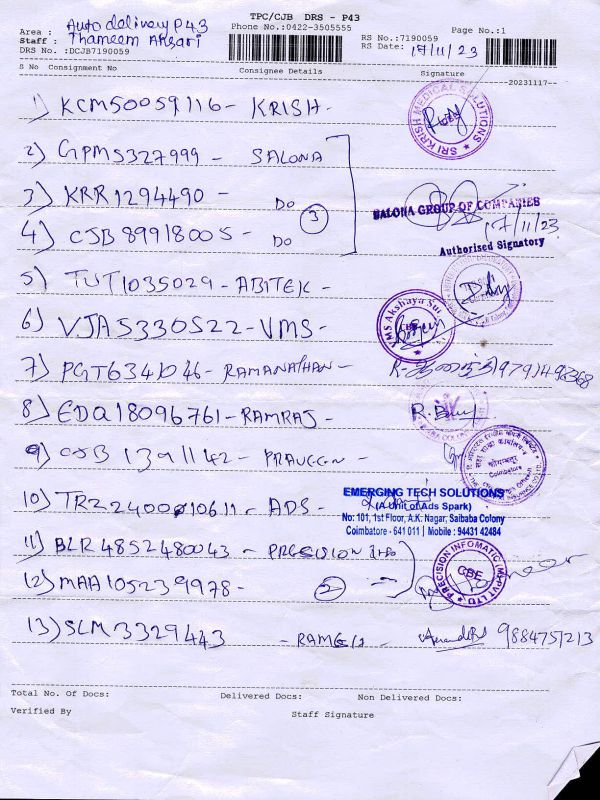 TPC/CJB DRS - P43
Area : Auto delivery P43
Phone No.:0422-3505555
Page No.:1
Staff : Thameem Ansari
RS No.:7190059
DRS No. :DCJB7190059
RS Date: 17/11/23
S No Consignment No Consignee Details Signature
20231117
1) KCM50059116 - KRISH -
SRI KRISH MEDICAL SOLUTIONS
2) GPM5327999 - SALONA
3) KRR1294490 - DO
3
SALONA GROUP OF COMPANIES
17/11/23
4) CJB89918005 - DO
Authorised Signatory
5) TUT1035029 - ABITEK -
6) VJA5330522 - VMS -
VMS Akshaya Sui
CBE
7) PGT6341046 - RAMANATHAN -
8) EDQ18096761 - RAMRAJ -
9) CJB1391142 - PRAVEEN -
Coimbatore
10) TRZ2400010611 - ADS -
EMERGING TECH SOLUTIONS
(A Unit of Ads Spark)
No: 101, 1st Floor, A.K. Nagar, Saibaba Colony
Coimbatore - 641 011 | Mobile : 94431 42484
11) BLR4852480043 - PRECISION Info
12) MAA105239978 -
2
PRECISION INFOMATIC (M) PVT LTD
CBE
13) SLM3329443 - RAMESH - 9884751213
Total No. Of Docs: Delivered Docs: Non Delivered Docs:
Verified By Staff Signature